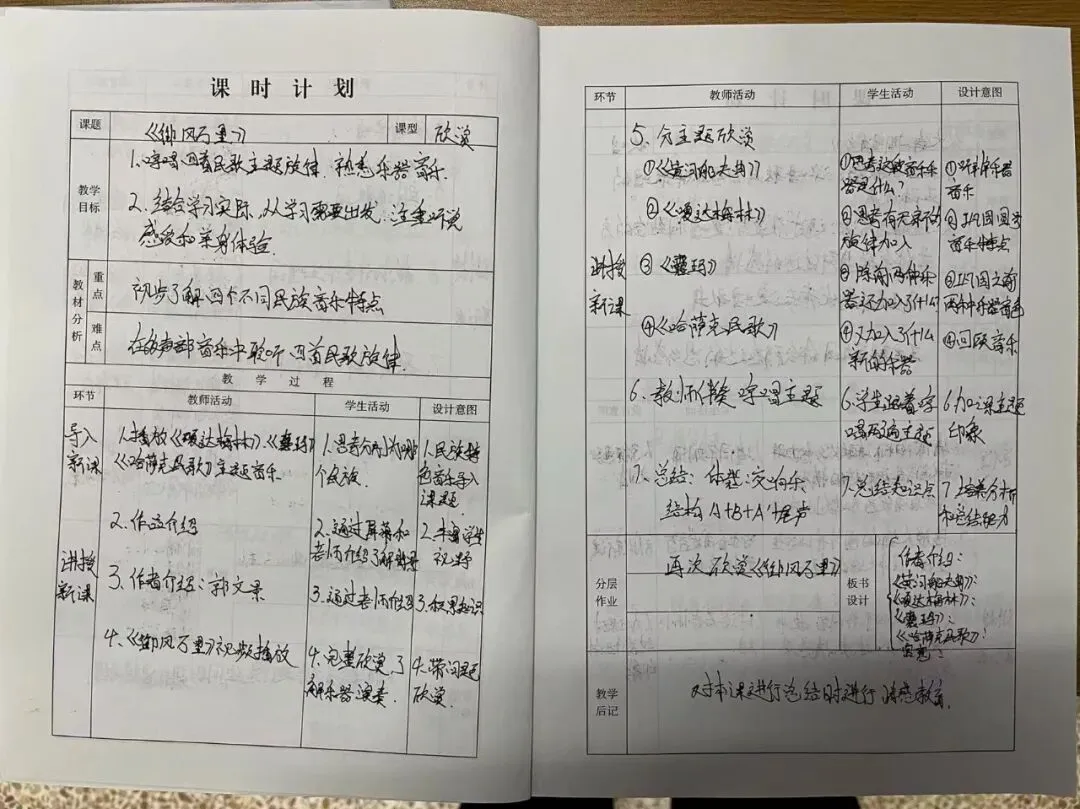 课时计划
课题 《御风万里》 课型 欣赏
教学目标
1.哼唱四首民歌主题旋律,熟悉乐器音乐.
2.结合学习实际,从学习需要出发,注重听觉
感受和亲身体验.
教材分析
重点 初步了解四个不同民族音乐特点
难点 在多声部音乐中聆听四首民歌旋律.
教 学 过 程
环节 教师活动 学生活动 设计意图
导入
新课
1.播放《嘎达梅林》、《囊玛》
《哈萨克民歌》主题音乐
1.思考分别为哪
个民族.
1.民族特
色音乐导入
课题.
讲授
新课
2.作品介绍
2.通过屏幕和
老师介绍了解背景
2.丰富学生
视野
3.作者介绍:郭文景
3.通过老师介绍
3.积累知识
4.《御风万里》视频播放
4.完整欣赏,了
解乐器演奏.
4.带问题
欣赏.
环节 教师活动 学生活动 设计意图
讲授
新课
5.分主题欣赏
①《黄河船夫曲》
①思考这段音乐乐
器是什么?
①听辨乐器
音乐
②《嘎达梅林》
②思考有无不同
旋律加入
②巩固
音乐特点
③《囊玛》
③除前两种乐
器还加入了什么
③巩固之前
两种乐器音色
④《哈萨克民歌》
④又加入了什么
新的乐器
④回顾音乐
6.教师伴奏哼唱主题
6.学生跟着哼
唱两遍主题
6.加深主题
印象
7.总结:体裁:交响乐
结构:A+B+A'+尾声
7.总结知识点
7.培养分析
和总结能力
分层
作业
再次欣赏《御风万里》
板书
设计
作者介绍:
《黄河船夫曲》:
《嘎达梅林》:
《囊玛》:
《哈萨克民歌》:
教学
后记
对本课进行总结时进行情感教育.